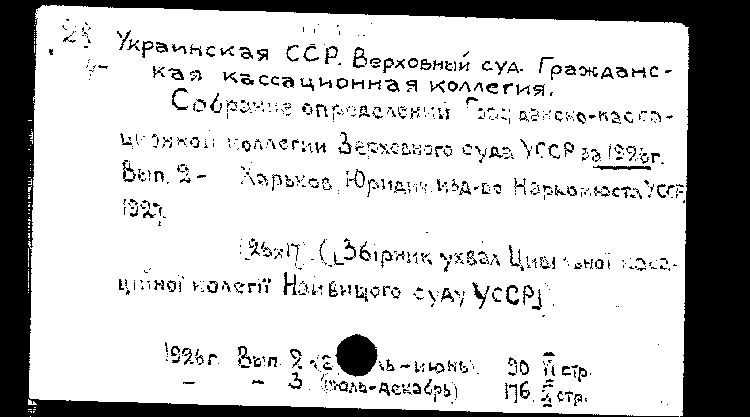 28
4-
Украинская ССР. Верховный суд. Гражданс-
кая кассационная коллегия.
Собрание определений Гражданско-касса-
ционной коллегии Верховного суда УССР за 1926г.
Вып. 2- Харьков, Юридич. изд-во Наркомюста УССР,
1927.
[26х17]. ([Збірник ухвал Цивільної каса-
ційної колегії Найвищого суду УССР]).
1926г. Вып. 2 июнь). 90 VI стр.
– – 3. (июль-декабрь) 176 стр.